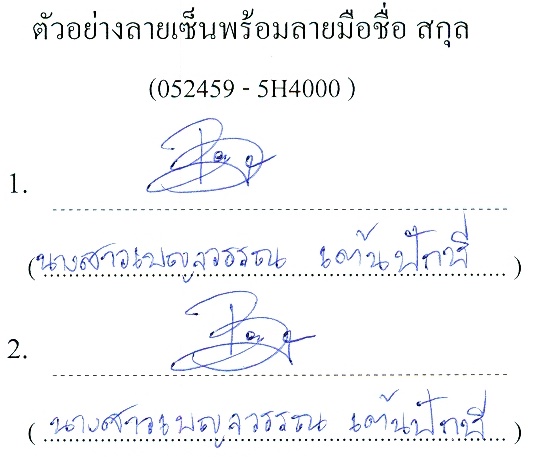 ตัวอย่างลายเซ็นพร้อมลายมือชื่อ สกุล
(052459 - 5H4000 )
1.
(นางสาวเบญจวรรณ เต้นปักษี )
2.
( นางสาวเบญจวรรณ เต้นปักษี )